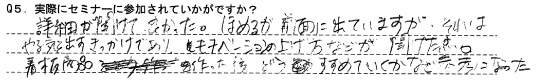 Q5. 実際にセミナーに参加されていかがですか？
詳細が聞けて良かった。ほめるが前面に出ていますが、それは
やる気を出すきっかけであり、モチベーションの上げ方などが聞けた。
看板商品 を作った後 どう すすめていくかなど参考になった